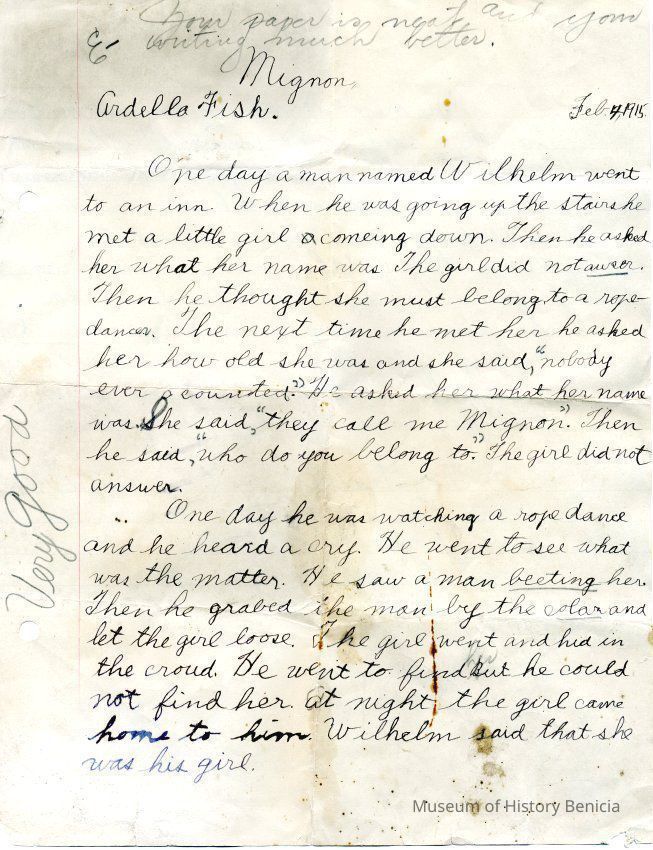 Your paper is neat and your
writing much better.
E
Mignon.
Ardella Fish.
Feb. 4, 1915.
One day a man named Wilhelm went
to an inn. When he was going up the stairs he
met a little girl a comeing down. Then he asked
her what her name was. The girl did not auser.
Then he thought she must belong to a rope
dancer. The next time he met her he asked
her how old she was and she said, "nobody
ever counted." He asked her what her name
was. She said, "they call me Mignon." Then
he said, "who do you belong to." The girl did not
answer.
One day he was watching a rope dance
and he heard a cry. He went to see what
was the matter. He saw a man beeting her.
Then he grabed the man by the colar and
let the girl loose. The girl went and hid in
the croud. He went to find but he could
not find her. At night, the girl came
home to him. Wilhelm said that she
was his girl.
Very good
Museum of History Benicia